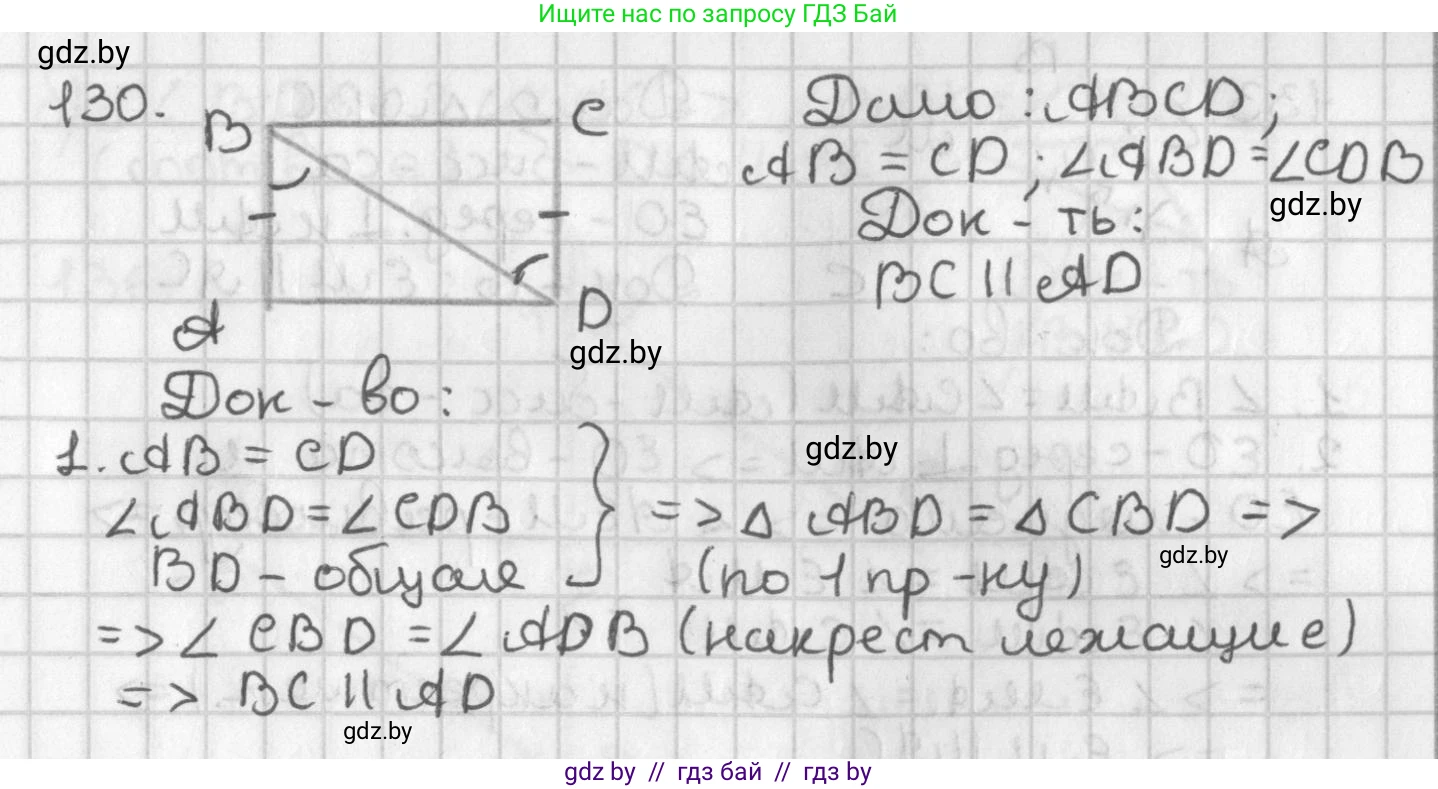 Ищите нас по запросу ГДЗ Бай
gdz.by
130.
B
C
A
D
Дано: ABCD;
AB = CD; ∠ABD = ∠CDB
gdz.by
Док-ть:
BC || AD
gdz.by
Док-во:
1. AB = CD
gdz.by
∠ABD = ∠CDB } => △ ABD = △ CBD =>
BD - общая (по 1 пр-ку)
gdz.by
=> ∠ CBD = ∠ ADB (накрест лежащие)
=> BC || AD
gdz.by
gdz by // гдз бай // гдз by